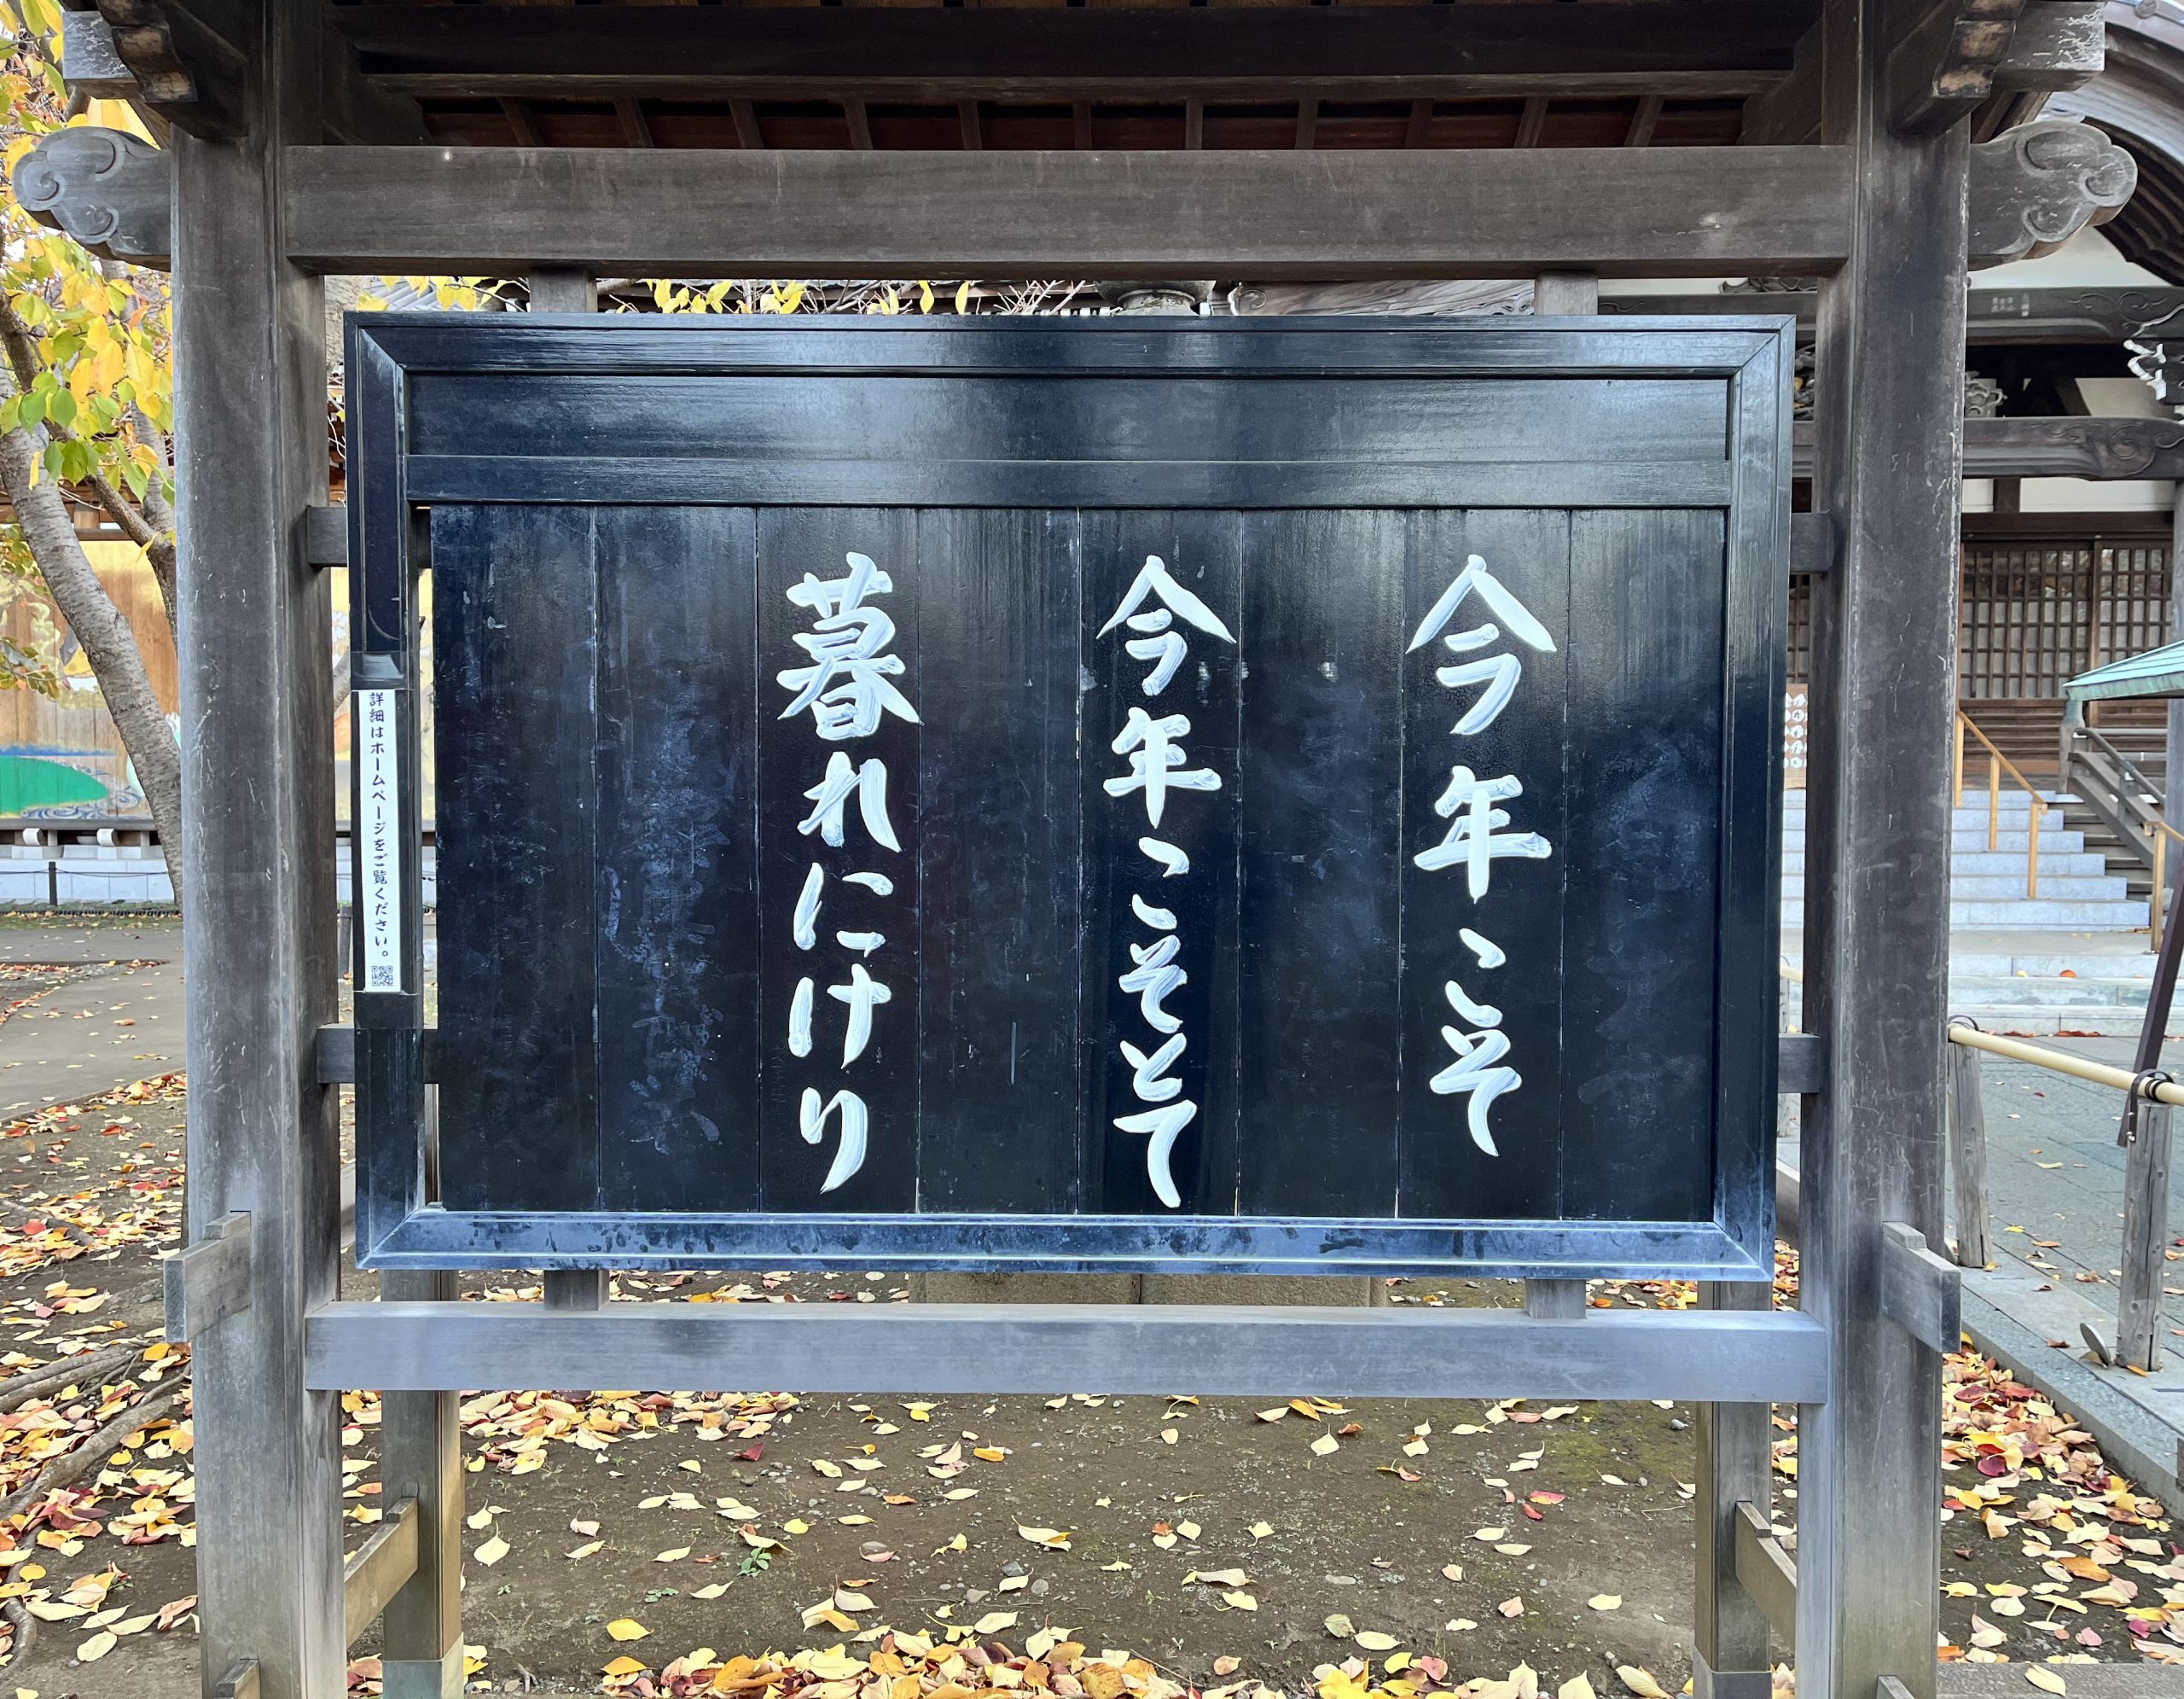 今年こそ
今年こそとて
暮れにけり
詳細はホームページをご覧ください。